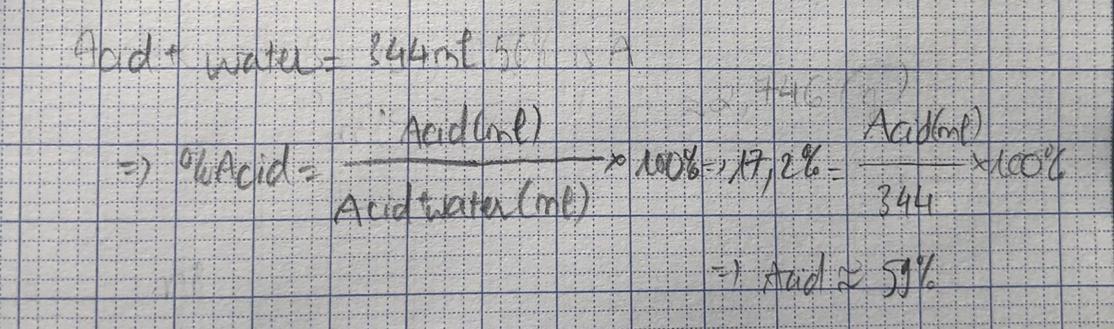 Acid + water = 344ml
=> %Acid = Acid(ml) / Acid+water(ml) × 100% => 17,2% = Acid(ml) / 344 × 100%
=> Acid ≈ 59%